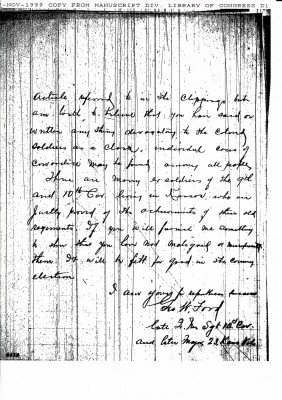 -NOV-1999 COPY FROM MANUSCRIPT DIV. LIBRARY OF CONGRESS DI
Article referred to in the clippings but
am loath to believe that you have said or
written any thing derogating to the Colored
soldiers as a class, individual cases of
cowardice may be found among all people
There are many ex soldiers of the 9th
and 10th Cav. living in Kansas, who are
justly proud of the achievements of their old
regiments. If you will furnish me something
to show that you have not maligned or
them. It will be for good in the coming
election
I am yours for republican success
Geo W. Ford
late Q. M. Sgt 10th Cav.
and late Major 23 Kans Vols